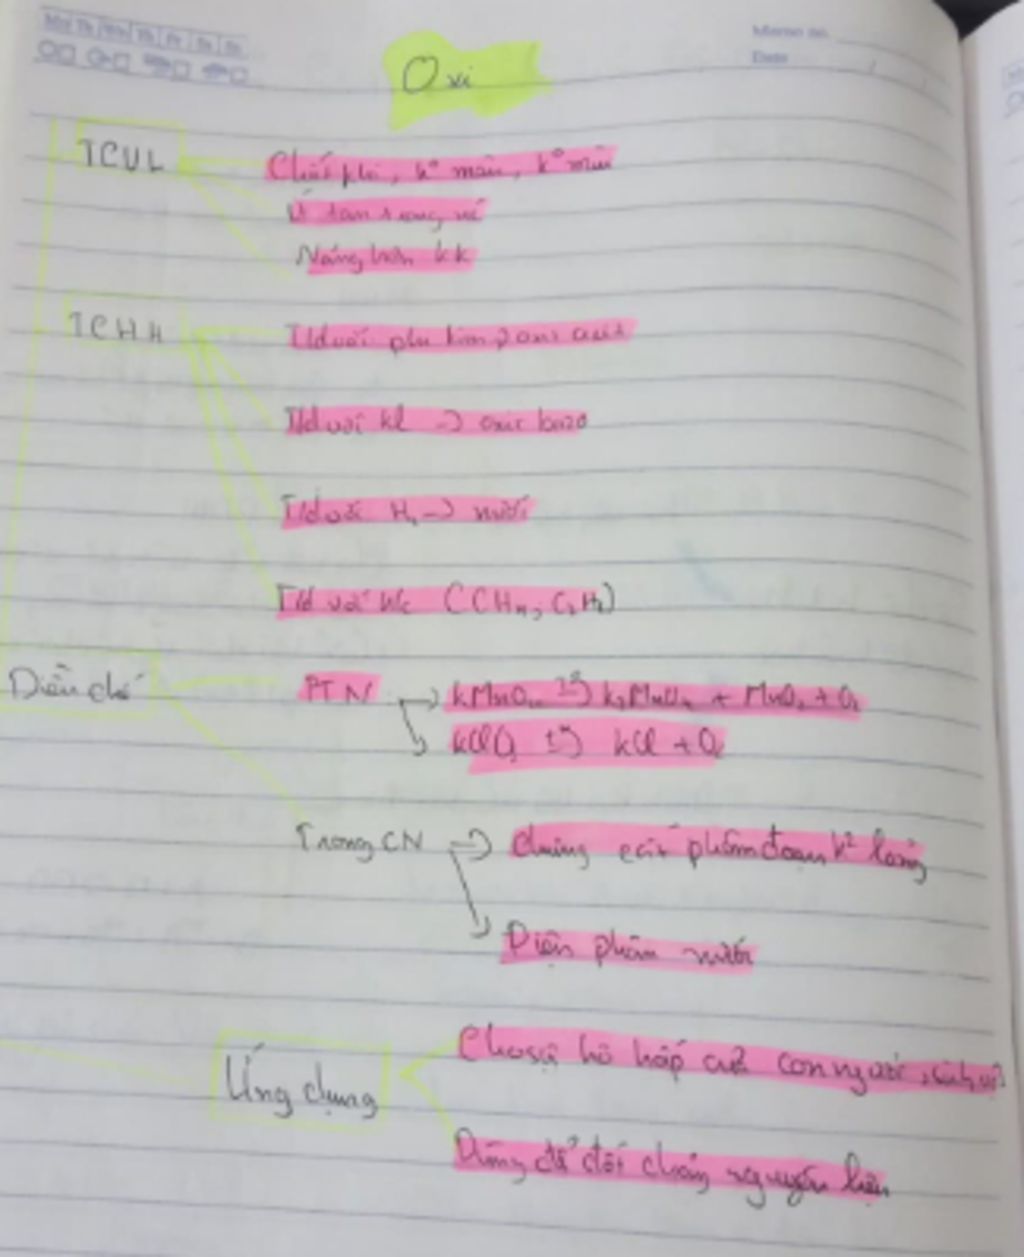 Mo Tu We Th Fr Sa Su
Memo no.
Date / /
Oxi
TCVL
Chất khí, k° màu, k° mùi
Ít tan trong nc
Nặng hơn kk
TCHH
T/d với phi kim → oxit axit
T/d với kl → oxit bazơ
T/d với H₂ → nước
T/d với h/c (CH₄, C₂H₂)
Điều chế
PTN → KMnO₄ t°→ K₂MnO₄ + MnO₂ + O₂
KClO₃ t°→ KCl + O₂
Trong CN → Chưng cất phân đoạn k² lỏng
Điện phân nước
Ứng dụng
Cho sự hô hấp của con người, sinh vật
Dùng để đốt cháy nguyên liệu